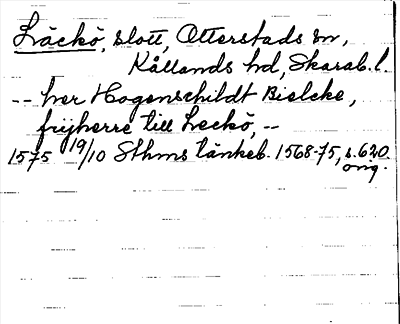 Läckö, slott, Otterstads sn,
Kållands hd, Skarab. l.
-- her Hogenschildt Bielcke,
frijherre till Leckö, --
1575 19/10 Sthms tänkeb. 1568-75, s. 620.
orig.